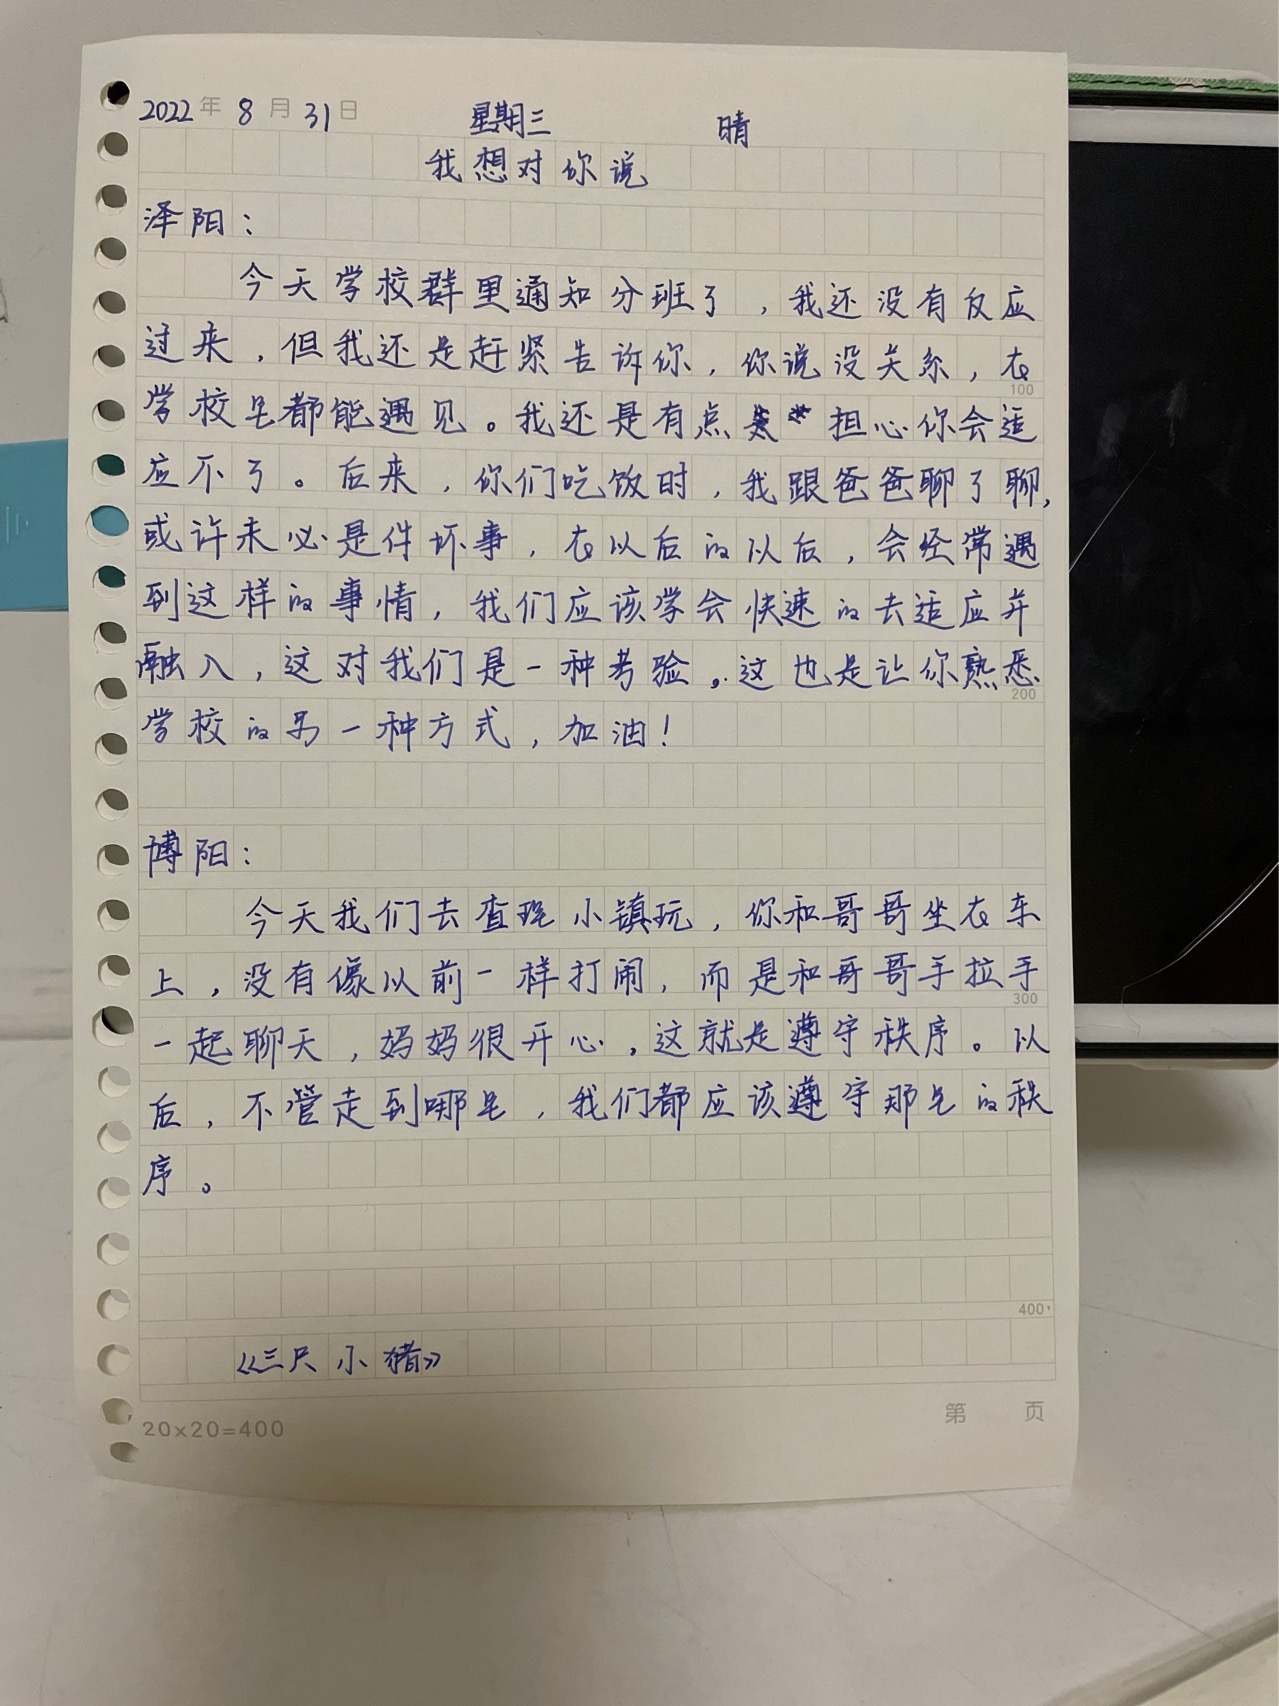 2022年 8月 31日 星期三 晴
我想对你说
泽阳：
今天学校群里通知分班了，我还没有反应
过来，但我还是赶紧告诉你，你说没关系，在
100
学校里都能遇见。我还是有点 担心你会适
应不了。后来，你们吃饭时，我跟爸爸聊了聊，
或许未必是件坏事，在以后的以后，会经常遇
到这样的事情，我们应该学会快速的去适应并
融入，这对我们是一种考验。这也是让你熟悉
200
学校的另一种方式，加油！
博阳：
今天我们去查理小镇玩，你和哥哥坐在车
上，没有像以前一样打闹，而是和哥哥手拉手
300
一起聊天，妈妈很开心，这就是遵守秩序。以
后，不管走到哪里，我们都应该遵守那里的秩
序。
400
《三只小猪》
20×20=400 第 页